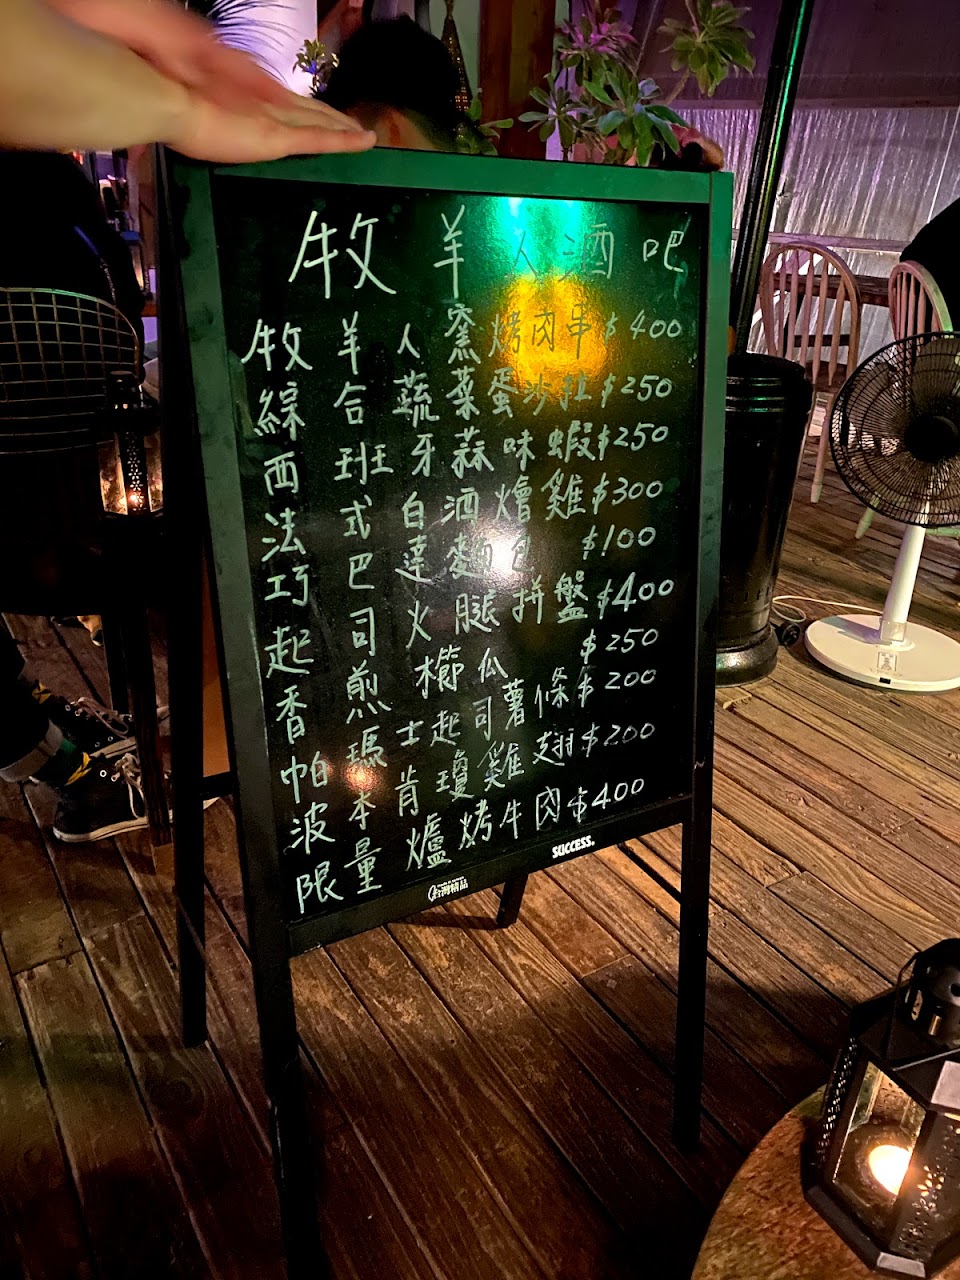 牧羊人酒吧
牧羊人窯烤肉串$400
綜合蔬菜蛋沙拉$250
西班牙蒜味蝦$250
法式白酒燴雞$300
巧巴達麵包 $100
起司火腿拼盤$400
香煎櫛瓜 $250
帕瑪士起司薯條$200
波本肯瓊雞翅$200
限量爐烤牛肉$400
台灣精品
SUCCESS.